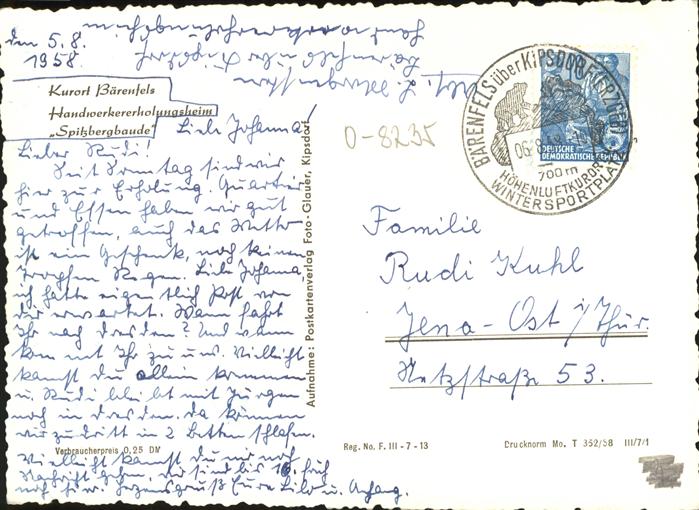 den 5.8.
1958.
Kurort Bärenfels
Handwerkererholungsheim
„Spitzbergbaude"
Liebe Johanna
Lieber Rudi!
Seit Sonntag sind wir
hier zur Erholung. Quartier
und Essen haben wir gut
getroffen, auch das Wetter
ist ein Geschenk, noch keinen
Tropfen Regen. Liebe Johanna
ich hatte eigentlich Post von
dir erwartet. Wann fahrt
Ihr nach Dresden? Und wann
kom mt Ihr zu uns. Vielleicht
kannst du allein kommen
u. Rudi bleibt mit Jürgen
noch in Dresden. Da können
wir zu dritt in 2 Betten schlafen.
Verbraucherpreis 0,25 DM
Vielleicht kannst du mir noch
Nachricht geben. Wir sind bis 16. früh
noch hier. Herzensgruß Eure Lilo u. Anhang.
Abs. L. Morgenstern
Bärenfels über Kipsdorf
Aufnahme: Postkartenverlag Foto-Glauer, Kipsdorf
0-8235
BÄRENFELS über KIPSDORF (ERZGEB)
700 m
HÖHENLUFTKURORT
WINTERSPORTPLATZ
DEUTSCHE
DEMOKRATISCHE REPUBLIK
Familie
Rudi Kuhl
Jena-Ost i/Thür.
Netzstraße 53.
Reg. No. F. III-7-13
Drucknorm Mo. T 352/58 III/7/1